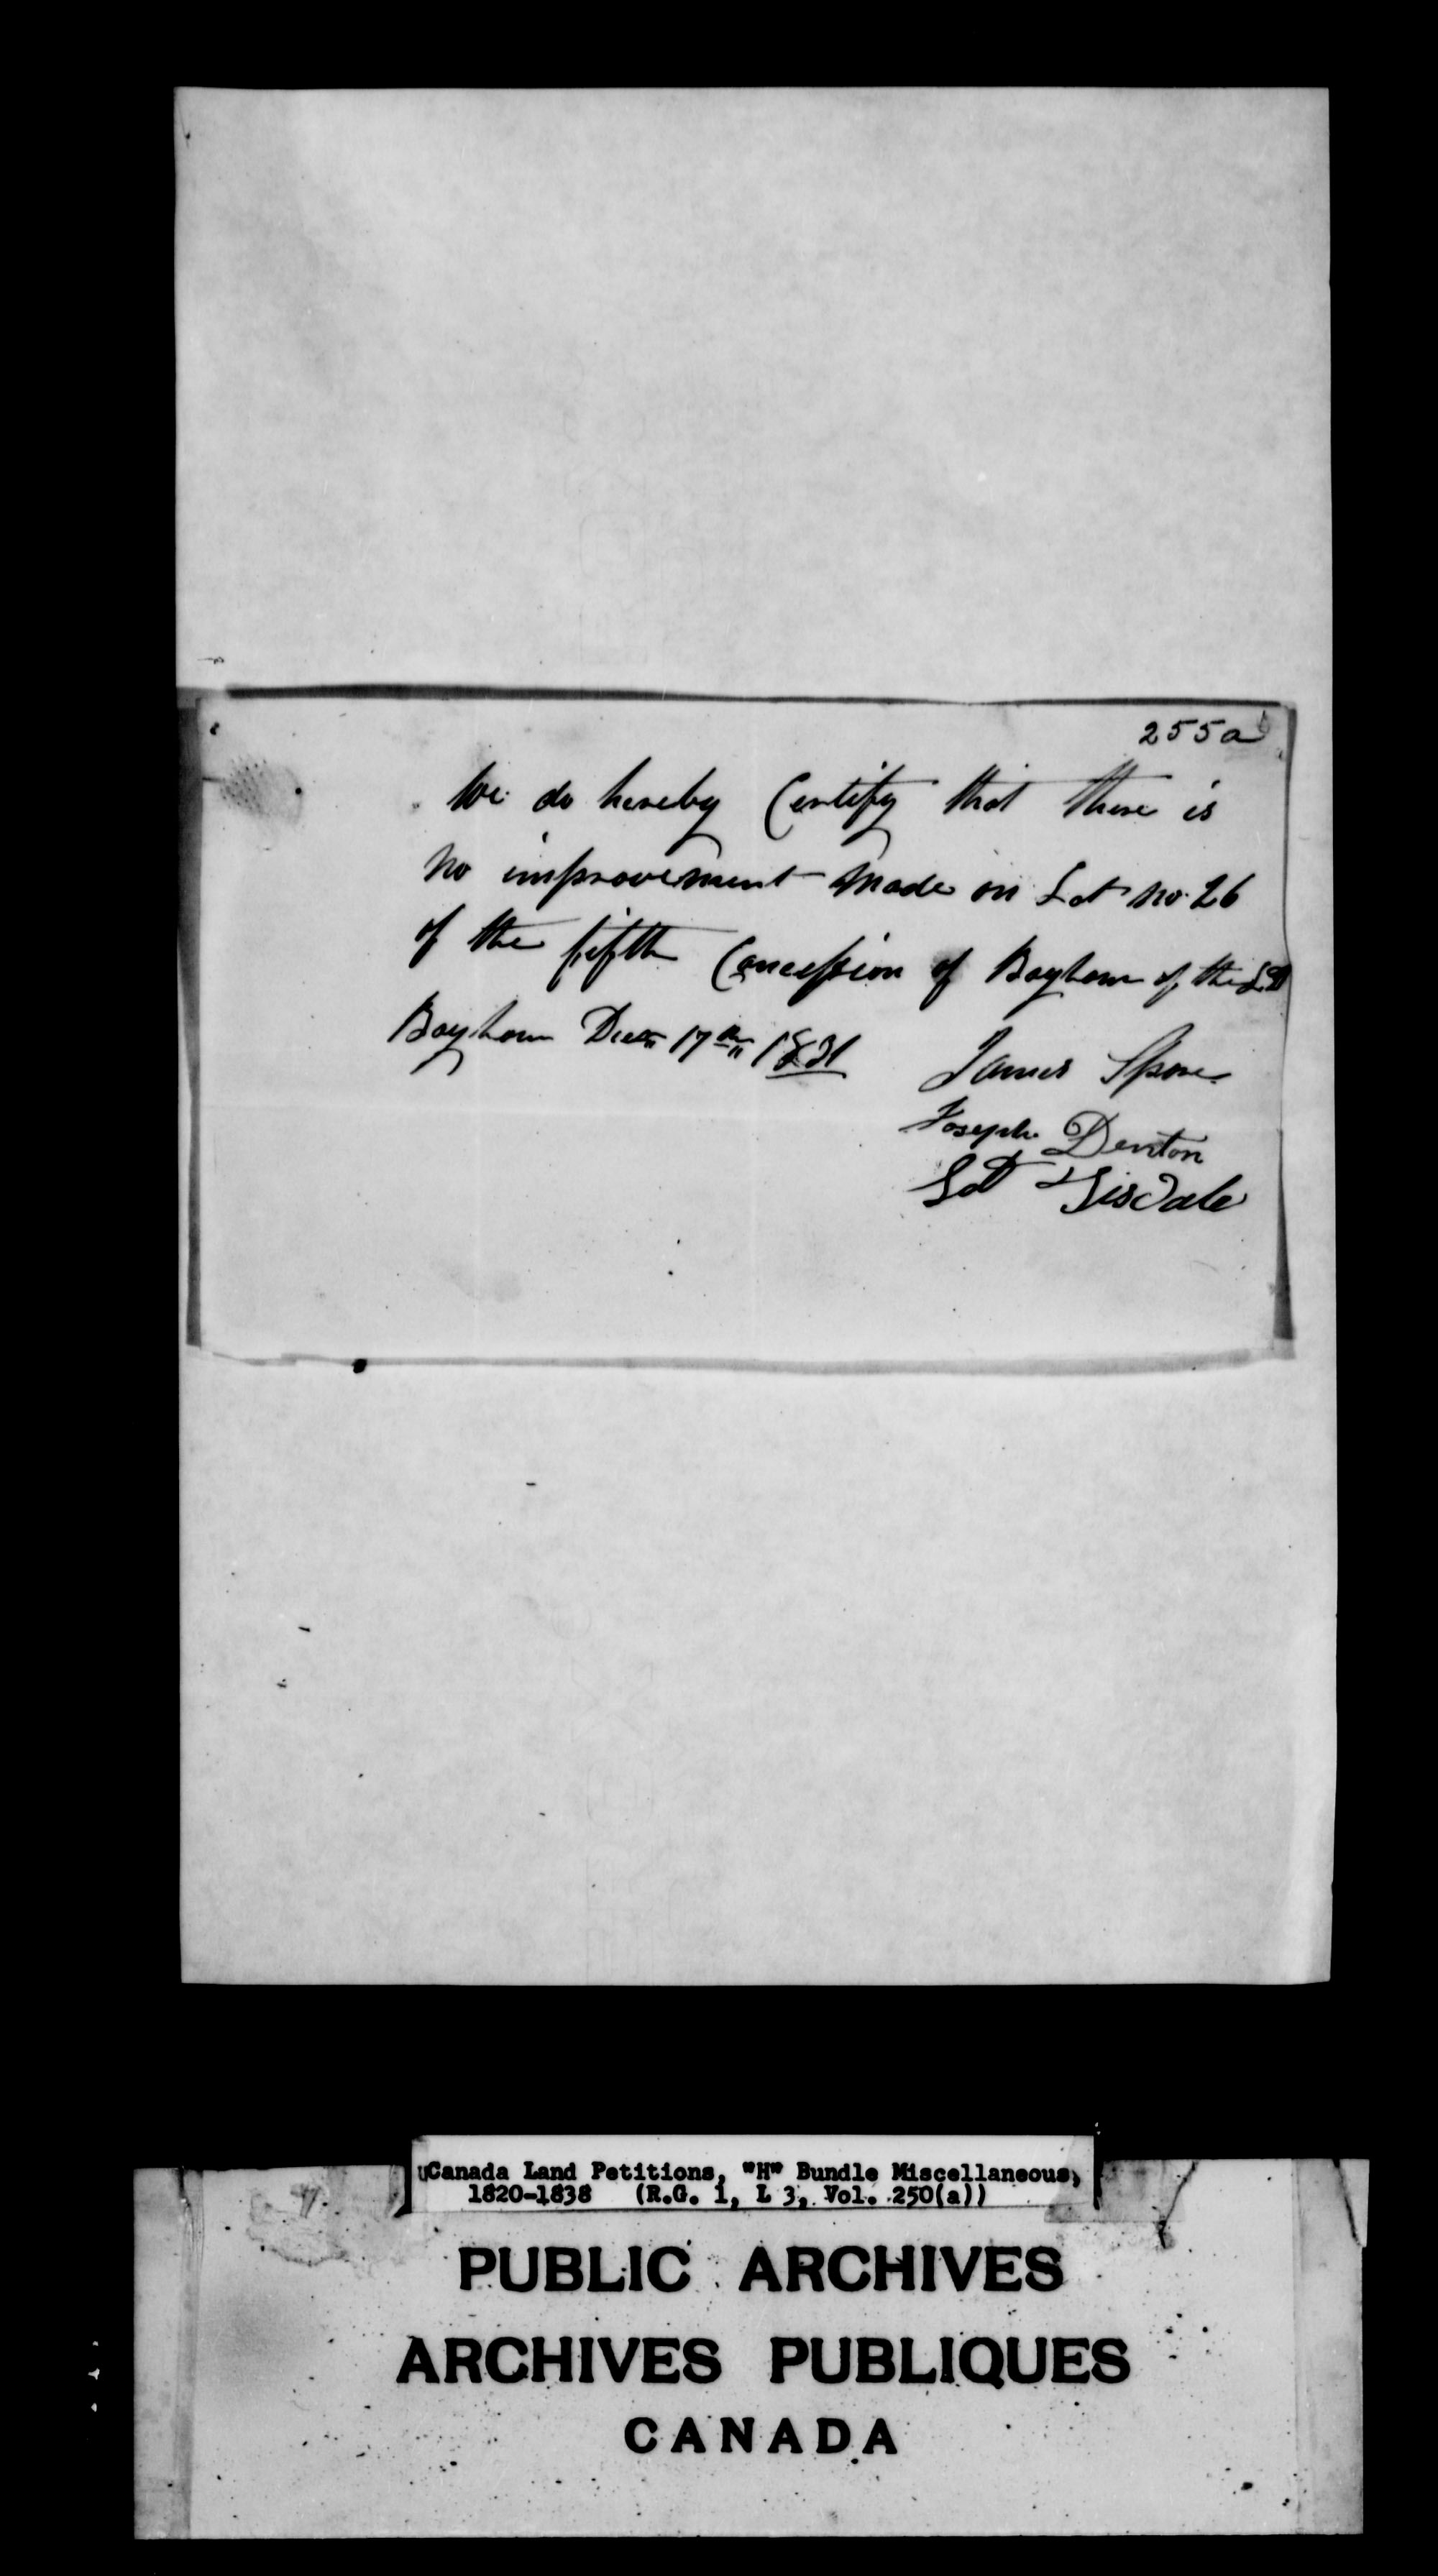 255a
We do hereby Certify that there is
no improvement made on Lot no. 26
of the fifth Concession of Bayham of the L D
Bayham Decr 17th 1831
James Spore
Joseph Denton
Lot Tisdale
UCanada Land Petitions, "H" Bundle Miscellaneous,
1820-1838 (R.G. 1, L 3, Vol. 250(a))
PUBLIC ARCHIVES
ARCHIVES PUBLIQUES
CANADA